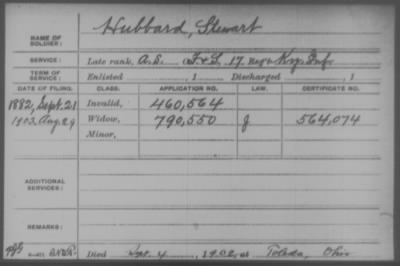 NAME OF SOLDIER: Hubbard, Stewart
SERVICE: Late rank, A.S. F+S, 17 Reg't Ky. Inf
TERM OF SERVICE: Enlisted , 1 Discharged , 1
DATE OF FILING. CLASS. APPLICATION NO. LAW. CERTIFICATE NO.
1882, Sept. 21 Invalid, 460,564
1902, Aug. 29 Widow, 790,550 J 564,074
Minor,
ADDITIONAL SERVICES:
REMARKS:
Died Sept. 4, 1902, at Toledo, Ohio